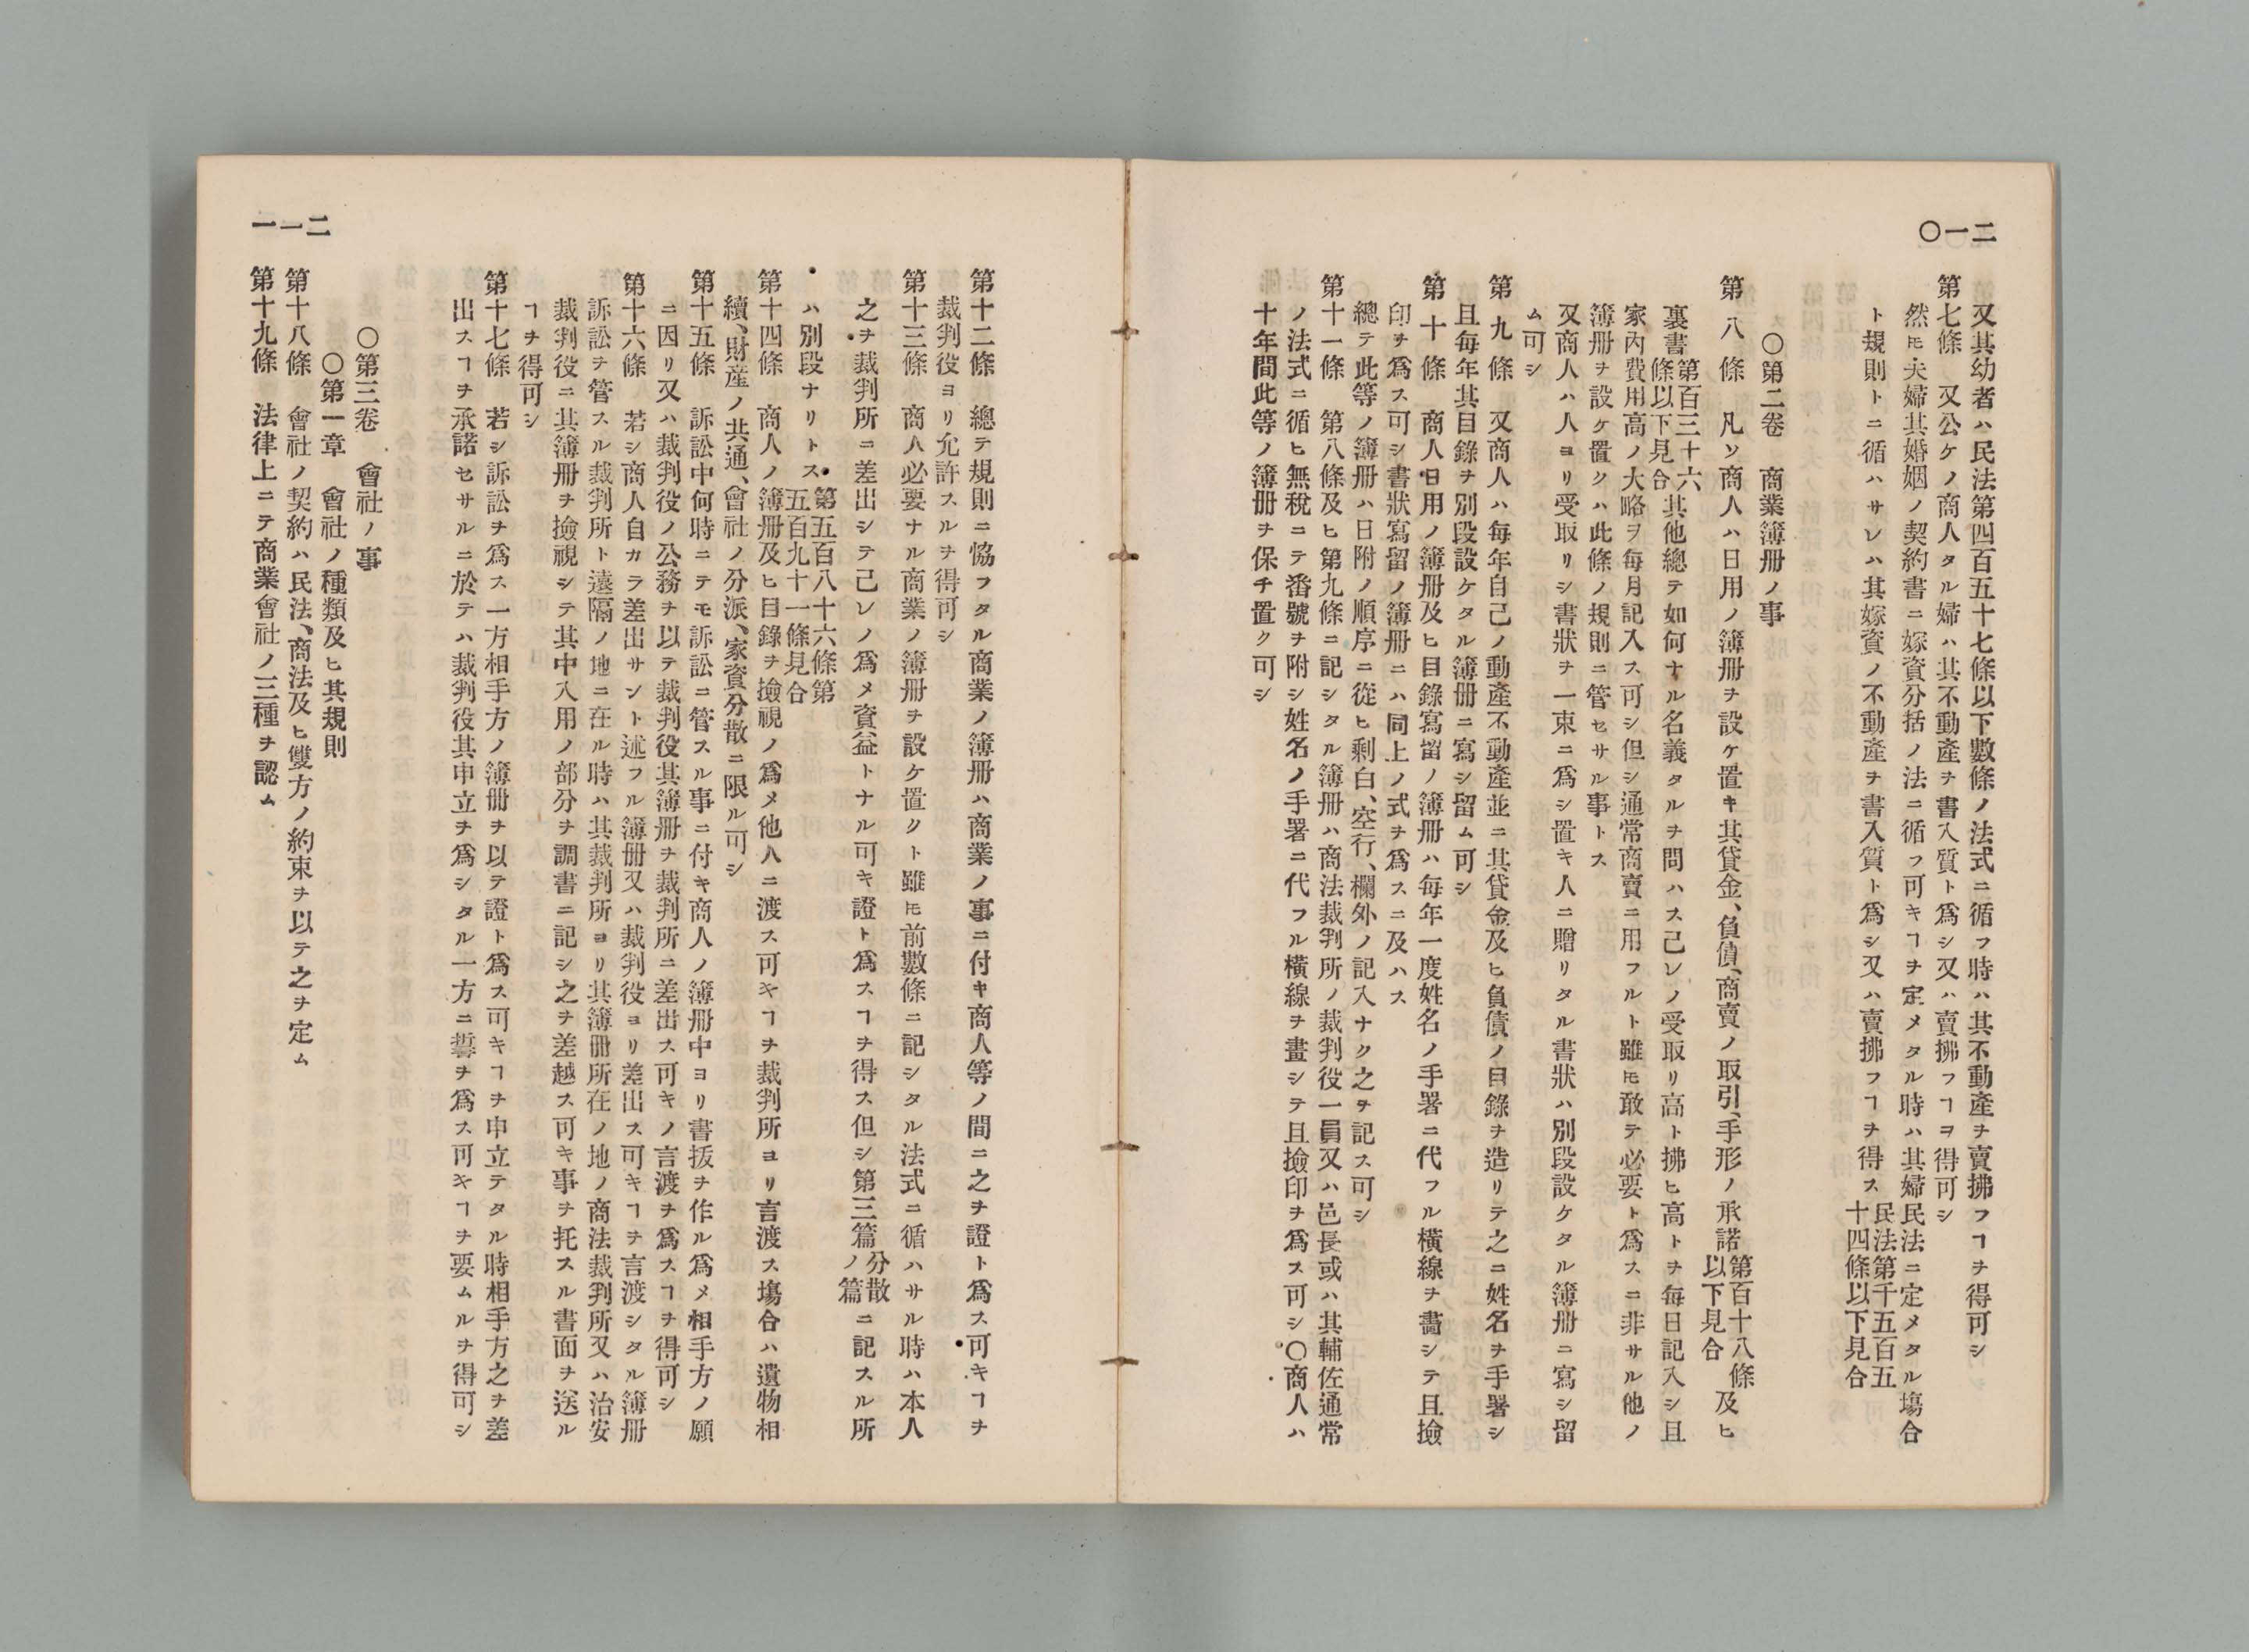 二一〇
又其幼者ハ民法第四百五十七條以下數條ノ法式ニ循フ時ハ其不動產チ賣拂フヿヲ得可シ
第七條　又公ケノ商人タル婦ハ其不動產チ書入質ト爲シ又ハ賣拂フヿヲ得可シ
然ㇳ゙モ夫婦其婚姻ノ契約書ニ嫁資分括ノ法ニ循フ可キヿヲ定メタル時ハ其婦民法ニ定メタル塲合
ト規則トニ循ハサレハ其嫁資ノ不動產ヲ書入質ト爲シ又ハ賣拂フヿチ得ス民法第千五百五十四條以下見合
〇第二卷　商業簿册ノ事
第八條　凡ソ商人ハ日用ノ簿册ヲ設ケ置キ其貸金、負債、商賣ノ取引、手形ノ承諾第百十八條以下見合及ヒ
裏書第百三十六條以下見合其他總テ如何ナル名義タルヲ問ハス己レノ受取リ高ト拂ヒ高トヲ每日記入シ且
家內費用高ノ大略ヲ每月記入ス可シ但シ通常商賣ニ用フルト雖モ敢テ必要ト爲スニ非サル他ノ
簿册ヲ設ケ置クハ此條ノ規則ニ管セサル事トス
又商人ハ人ヨリ受取リシ書狀ヲ一束ニ爲シ置キ人ニ贈リタル書狀ハ別段設ケタル簿册ニ寫シ留
ム可シ
第九條　又商人ハ每年自己ノ動產不動產並ニ其貸金及ヒ負債ノ目錄ヲ造リテ之ニ姓名ヲ手署シ
且每年其目錄ヲ別段設ケタル簿册ニ寫シ留ム可シ
第十條　商人日用ノ簿册及ヒ目錄寫留ノ簿册ハ每年一度姓名ノ手署ニ代フル橫線ヲ畫シテ且撿
印ヲ爲ス可シ書狀寫留ノ簿册ニハ同上ノ式ヲ爲スニ及ハス
總テ此等ノ簿册ハ日附ノ順序ニ從ヒ剩白、空行、欄外ノ記入ナク之ヲ記ス可シ
第十一條　第八條及ヒ第九條ニ記シタル簿册ハ商法裁判所ノ裁判役一員又ハ邑長或ハ其輔佐通常
ノ法式ニ循ヒ無稅ニテ番號ヲ附シ姓名ノ手署ニ代フル橫線ヲ畫シテ且撿印ヲ爲ス可シ〇商人ハ
十年間此等ノ簿册ヲ保チ置ク可シ
第十二條　總テ規則ニ恊フタル商業ノ簿册ハ商業ノ事ニ付キ商人等ノ間ニ之ヲ證ト爲ス可キヿヲ
裁判役ヨリ允許スルヲ得可シ
第十三條　商人必要ナル商業ノ簿册ヲ設ケ置クト雖モ前數條ニ記シタル法式ニ循ハサル時ハ本人
之ヲ裁判所ニ差出シテ己レノ爲メ資益トナル可キ證ト爲スヿヲ得ス但シ第三篇分散ノ篇ニ記スル所
ハ別段ナリトス第五百八十六條第五百九十一條見合
第十四條　商人ノ簿册及ヒ目錄ヲ撿視ノ爲メ他人ニ渡ス可キヿヲ裁判所ヨリ言渡ス塲合ハ遺物相
續、財產ノ共通、會社ノ分派、家資分散ニ限ル可シ
第十五條　訴訟中何時ニテモ訴訟ニ管スル事ニ付キ商人ノ簿册中ヨリ書拔ヲ作ル爲メ相手方ノ願
ニ因リ又ハ裁判役ノ公務ヲ以テ裁判役其簿册ヲ裁判所ニ差出ス可キノ言渡ヲ爲スヿヲ得可シ
第十六條　若シ商人自カラ差出サント述フル簿册又ハ裁判役ヨリ差出ス可キヿヲ言渡シタル簿册
訴訟ヲ管スル裁判所ト遠隔ノ地ニ在ル時ハ其裁判所ヨリ其簿册所在ノ地ノ商法裁判所又ハ治安
裁判役ニ其簿册ヲ撿視シテ其中入用ノ部分ヲ調書ニ記シ之ヲ差越ス可キ事ヲ托スル書面ヲ送ル
ヿヲ得可シ
第十七條　若シ訴訟ヲ爲ス一方相手方ノ簿册ヲ以テ證ト爲ス可キヿヲ申立テタル時相手方之ヲ差
出スヿヲ承諾セサルニ於テハ裁判役其申立ヲ爲シタル一方ニ誓ヲ爲ス可キヿヲ要ムルヲ得可シ
〇第三卷　會社ノ事
〇第一章　會社ノ種類及ヒ其規則
第十八條　會社ノ契約ハ民法、商法及ヒ雙方ノ約束ヲ以テ之ヲ定ム
第十九條　法律上ニテ商業會社ノ三種ヲ認ム
二一一